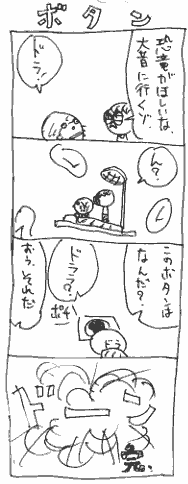 ボタン
恐竜がほしいな、
大昔に行くゾ
ドラ!
ん?
このボタンは
なんだ?
ドララ?
ポチ
おう、それだ
ドラ
ドーン
完.